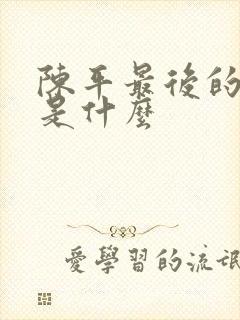 陳平最後的
是什麼
愛學習的流氓